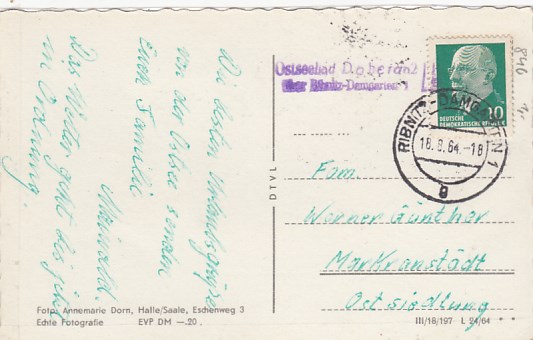 Die besten Urlaubsgrüße
von der Ostsee senden
Euch Familie
Das Wetter geht bis jetzt
in Ordnung.
Foto: Annemarie Dorn, Halle/Saale, Eschenweg 3
Echte Fotografie EVP DM —.20
DTVL
Ostseebad
über Ribnitz-Damgarten 1
DEUTSCHE
DEMOKRATISCHE REPUBLIK
10
RIBNITZ-DAMGARTEN 1
18.8.64.-18
g
846
Fam.
Werner Günther
Markranstädt
Ostsiedlung
III/18/197 L 24/64